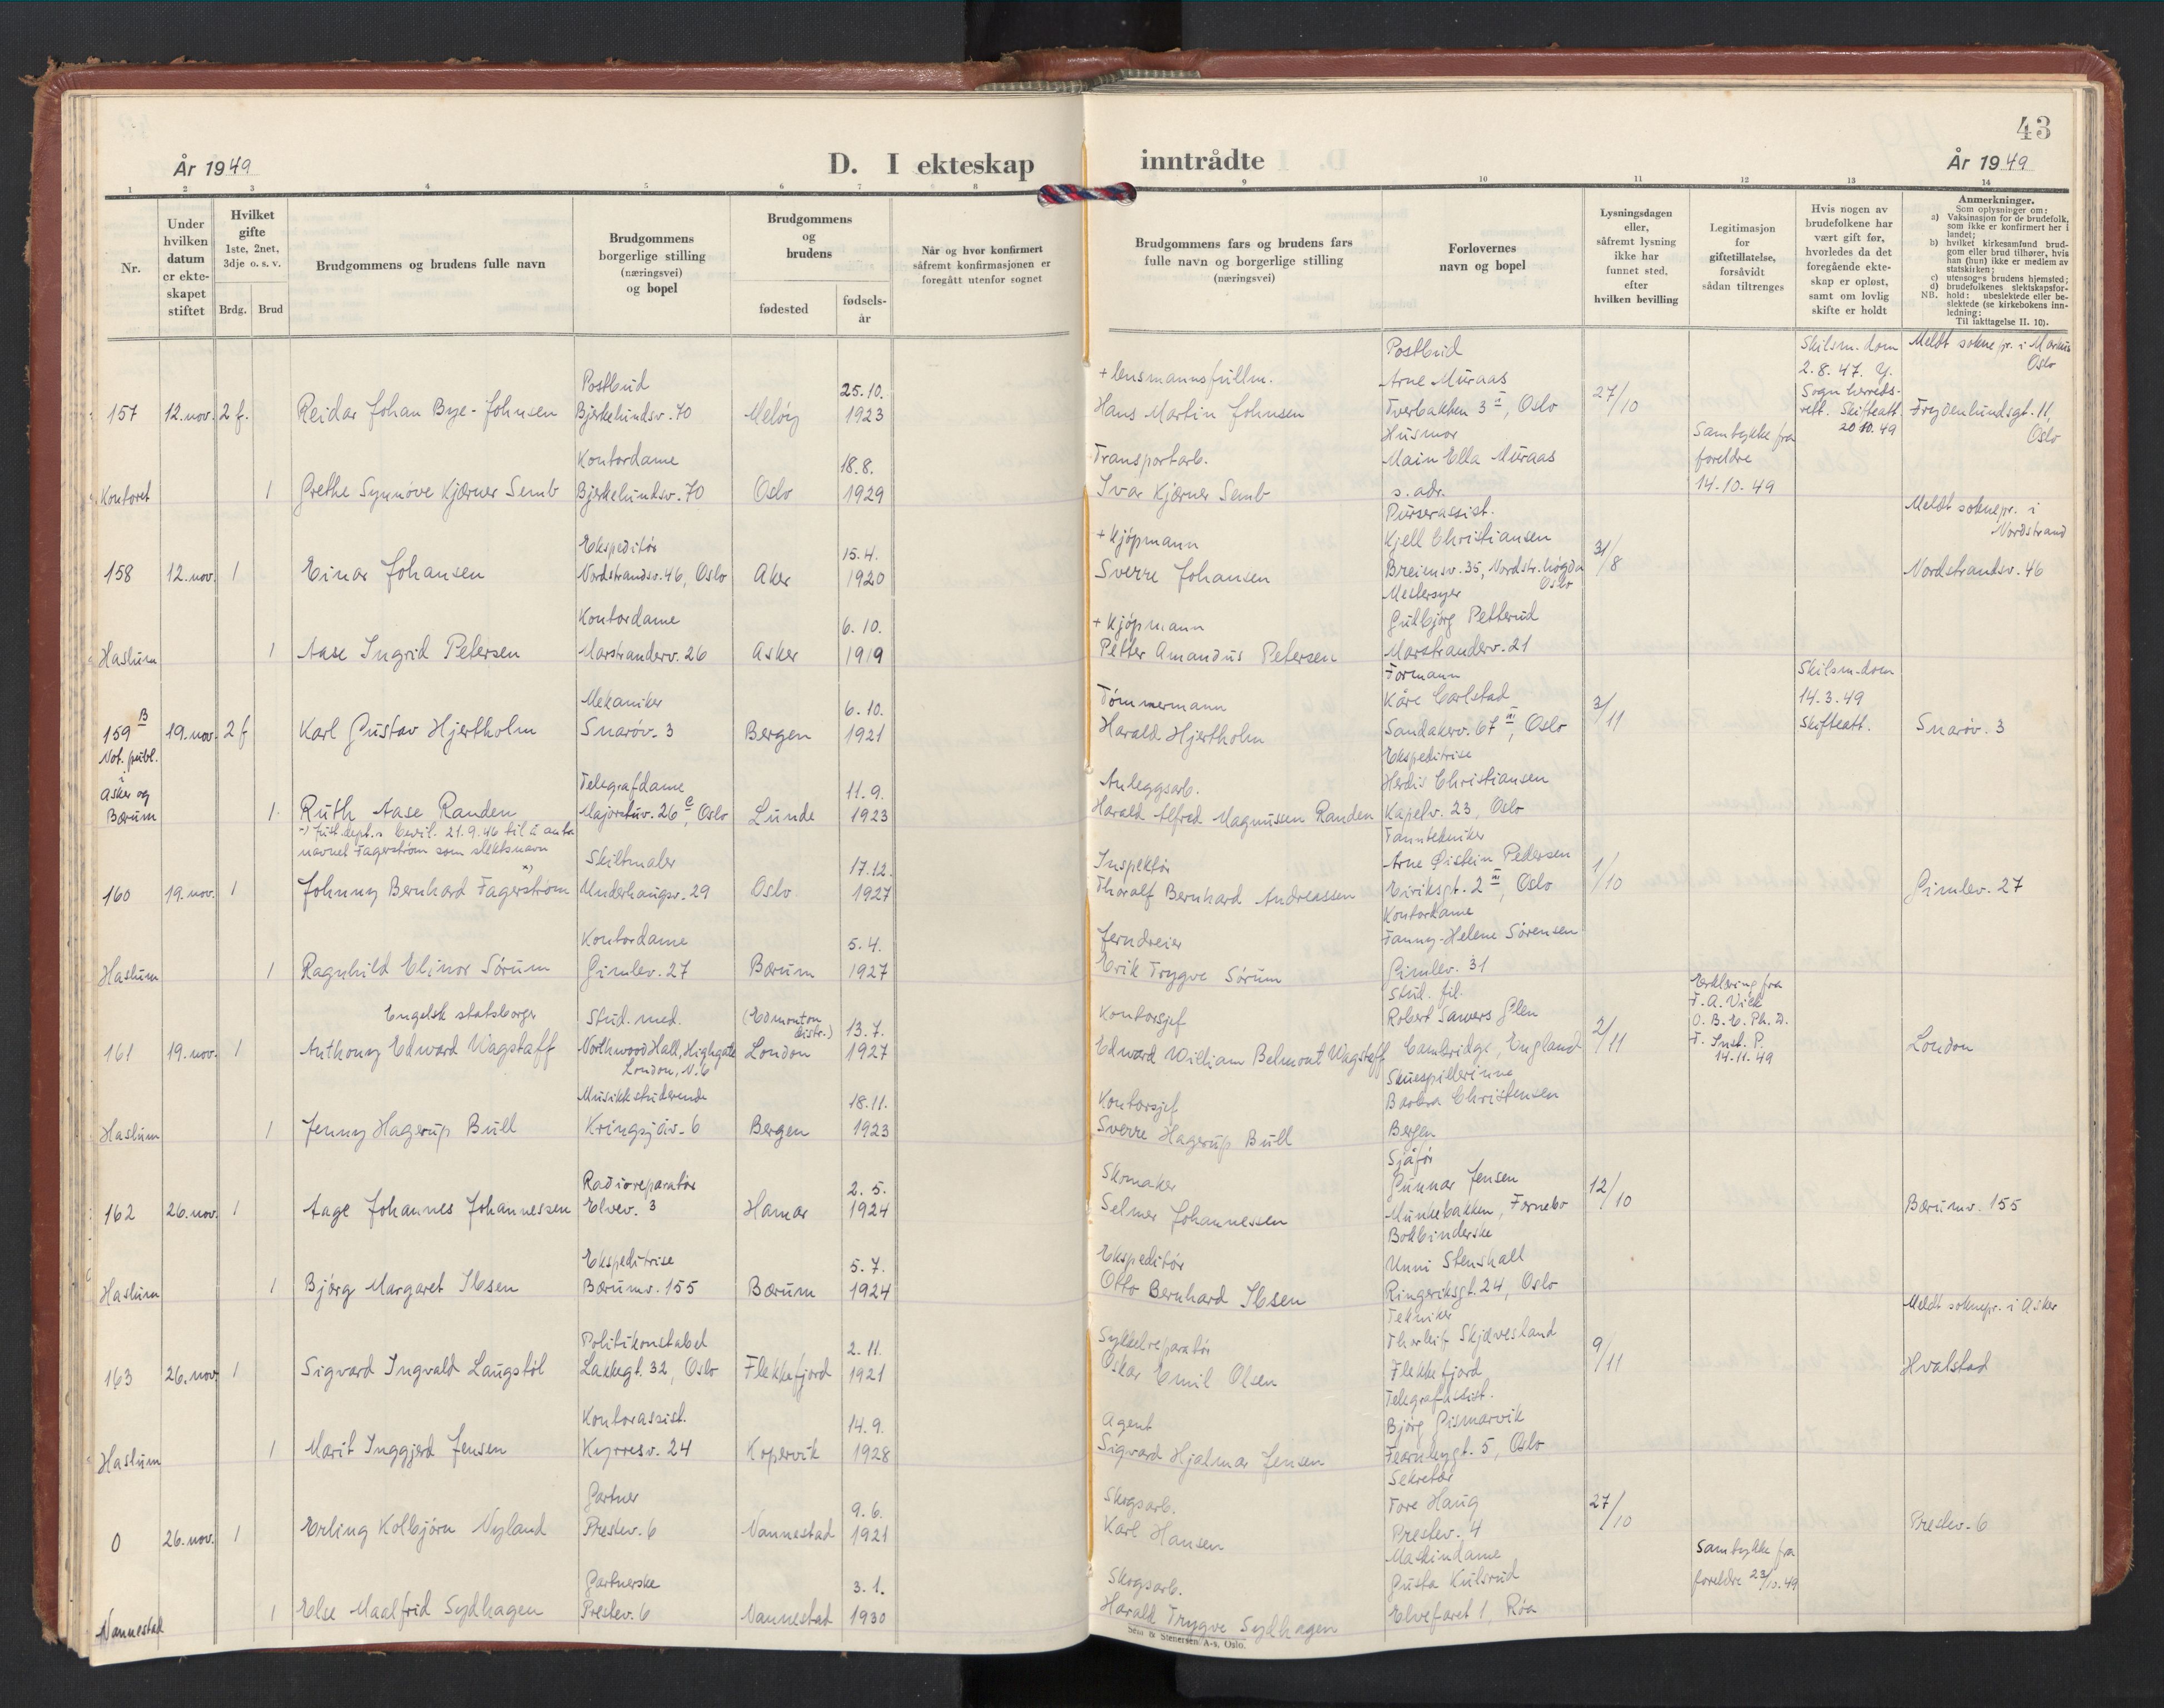 43
År 1949
D. I ekteskap
inntrådte
År 1949
1 2 3 4 5 6 7 8 9 10 11 12 13 14
Nr.
Under hvilken datum er ekteskapet stiftet
Hvilket gifte
1ste, 2net, 3dje o. s. v.
Brdg.
Brud
Brudgommens og brudens fulle navn
Brudgommens borgerlige stilling (næringsvei) og bopel
Brudgommens og brudens
fødested
fødsels-år
Når og hvor konfirmert såfremt konfirmasjonen er foregått utenfor sognet
Brudgommens fars og brudens fars fulle navn og borgerlige stilling (næringsvei)
Forlovernes navn og bopel
Lysningsdagen eller, såfremt lysning ikke har funnet sted, efter hvilken bevilling
Legitimasjon for giftetillatelse, forsåvidt sådan tiltrenges
Hvis nogen av brudefolkene har vært gift før, hvorledes da det foregående ekteskap er opløst, samt om lovlig skifte er holdt
Anmerkninger.
Som oplysninger om:
a) Vaksinasjon for de brudefolk, som ikke er konfirmert her i landet;
b) hvilket kirkesamfund brudgom eller brud tilhører, hvis han (hun) ikke er medlem av statskirken;
c) utensogns brudens hjemsted;
d) brudefolkenes slektskapsforhold: ubeslektede eller beslektede (se kirkebokens innledning:
NB.
Til iakttagelse II. 10).
157 12. nov. 2 f. Reidar Johan Bye-Johnsen
Postbud
Bjerkelundsv. 70
Meløy
25.10.
1923
+ lensmannsfullm.
Hans Martin Johnsen
Postbud
Arne Muraas
Tverbakken 3 II, Oslo
27/10
Skilsm. dom
2.8.47. Y.
Sogn herreds-
rett. Skifteatt.
20.10.49
Meldt soknepr. i Markus
Oslo
Frydenlundsgt. 11,
Oslo
Kontoret 1 Grethe Synnöve Kjærner Semb
Kontordame
Bjerkelundsv. 70
Oslo
18.8.
1929
Transportarb.
Ivar Kjærner Semb
Husmor
Main Ella Muraas
s. adr.
Samtykke fra
foreldre
14.10.49
158 12. nov. 1 Einar Johansen
Ekspeditör
Nordstrandsv. 46, Oslo
Aker
15.4.
1920
+ Kjöpmann
Sverre Johansen
Purserassist.
Kjell Christiansen
Breiensv. 35, Nordstr.högda
Oslo
31/8
Meldt soknepr. i
Nordstrand
Nordstrandsv. 46
Haslum 1 Aase Ingrid Petersen
Kontordame
Marstranderv. 26
Asker
6.10.
1919
+ Kjöpmann
Petter Amandus Petersen
Mestersyer
Gudbjörg Petterud
Marstranderv. 21
159 B 19. nov. 2 f Karl Gustav Hjertholm
Mekaniker
Snaröv. 3
Bergen
6.10.
1921
Tömmermann
Harald Hjertholm
Formann
Kåre Carlstad
Sandakerv. 67 III, Oslo
3/11
Skilsm.dom
14.3.49
Skifteatt.
Snaröv. 3
Not. publ.
i
Asker og
Bærum 1 Ruth Aase Randen
Telegrafdame
Majorstuv. 26 C, Oslo
Lunde
11.9.
1923
Anleggsarb.
Harald Alfred Magnussen Randen
Ekspeditrise
Herdis Christiansen
Kapelv. 23, Oslo
x) Just.dept.s bevil. 21.9.46 til å anta
navnet Fagerström som slektsnavn
160 19. nov. 1 Johnny Bernhard Fagerström x)
Skiltmaler
Underhaugsv. 29
Oslo
17.12.
1927
Inspektör
Thoralf Bernhard Andreassen
Tanntekniker
Arne Øistein Pedersen
Eiriksgt. 2 III, Oslo
1/10
Gimlev. 27
Haslum 1 Ragnhild Elinor Sörum
Kontordame
Gimlev. 27
Bærum
5.4.
1927
Jerndreier
Erik Trygve Sörum
Kontordame
Fanny-Helene Sörensen
Gimlev. 31
Engelsk statsborger
161 19. nov. 1 Anthony Edward Wagstaff
Stud. med.
Northwood Hall, Highgate
London, N. 6
(Edmonton
distr.)
London
13.7.
1927
Kontorsjef
Edward William Belmont Wagstaff
Stud. fil.
Robert Sawers Glen
Cambridge, England
2/11
Erklæring fra
F. A. Vick
O. B. E. Ph. D.
F. Inst. P.
14.11.49
London
Haslum 1 Jenny Hagerup Bull
Musikkstuderende
Kringsjåv. 6
Bergen
18.11.
1923
Kontorsjef
Sverre Hagerup Bull
Skuespillerinne
Barbra Christensen
Bergen
162 26. nov. 1 Aage Johannes Johannessen
Radioreparatör
Elvev. 3
Hamar
2.5.
1924
Skomaker
Selmer Johannessen
Sjåför
Gunnar Jensen
Munkebakken, Fornebo
12/10
Bærumv. 155
Haslum 1 Björg Margaret Ibsen
Ekspeditrise
Bærumv. 155
Bærum
5.7.
1924
Ekspeditör
Otto Bernhard Ibsen
Bokbinderske
Unni Stenshall
Ringeriksgt. 24, Oslo
163 26. nov. 1 Sigvard Ingvald Laugstöl
Politikonstabel
Lakkegt. 32, Oslo
Flekkefjord
2.11.
1921
Sykkelreparatör
Oskar Emil Olsen
Tekniker
Thorleif Skjævesland
Flekkefjord
9/11
Meldt soknepr. i Asker
Hvalstad
Haslum 1 Marit Inggjerd Jensen
Kontorassist.
Kyrresv. 24
Kopervik
14.9.
1928
Agent
Sigvard Hjalmar Jensen
Telegrafassist.
Björg Gismarvik
Fearnleygt. 5, Oslo
0 26. nov. 1 Erling Kolbjörn Nyland
Gartner
Prestev. 6
Nannestad
9.6.
1921
Skogsarb.
Karl Hansen
Sekretær
Tore Haug
Prestev. 4
27/10
Prestev. 6
Nannestad 1 Else Maalfrid Sydhagen
Gartnerske
Prestev. 6
Nannestad
3.1.
1930
Skogsarb.
Harald Trygve Sydhagen
Maskindame
Gusta Kulsrud
Elvefaret 1, Röa
Samtykke fra
foreldre 23/10.49
Sem & Stenersen A-s, Oslo.